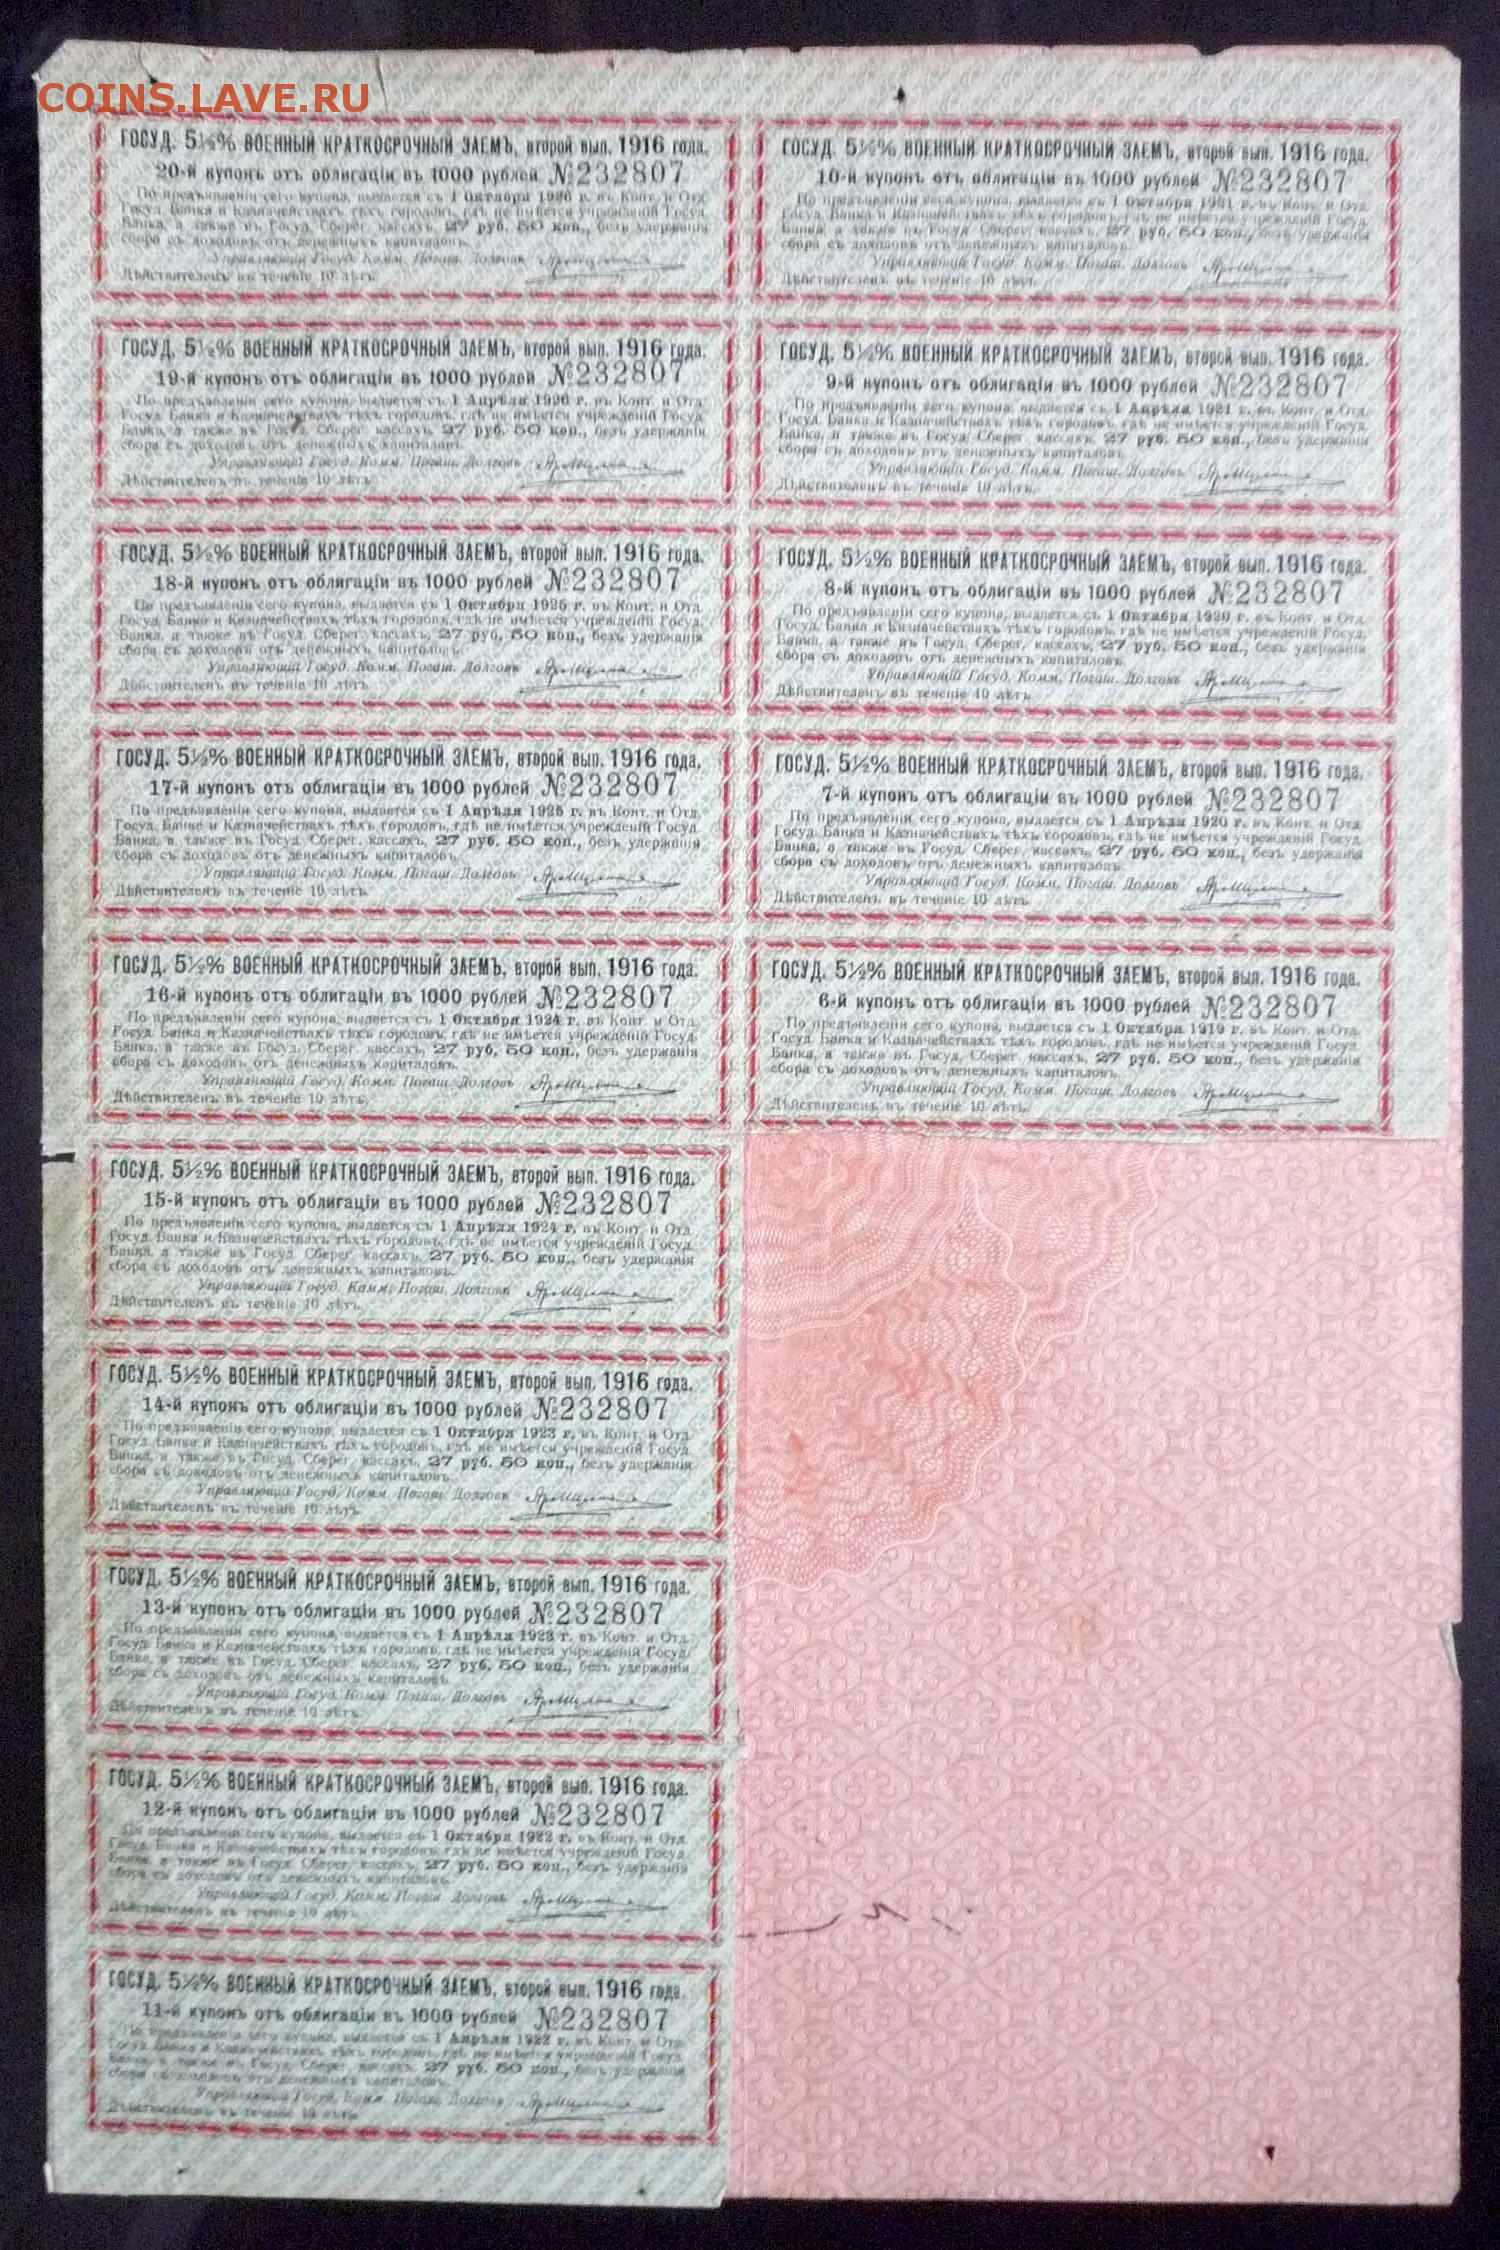 COINS.LAVE.RU
ГОСУД. 5½% ВОЕННЫЙ КРАТКОСРОЧНЫЙ ЗАЕМЪ, второй вып. 1916 года.
20-й купонъ отъ облигаціи въ 1000 рублей №232807
По предъявленіи сего купона, выдается съ 1 Октября 1926 г. въ Конт. и Отд.
Госуд. Банка и Казначействахъ тѣхъ городовъ, гдѣ не имѣется учрежденій Госуд.
Банка, а также въ Госуд. Сберег. кассахъ, 27 руб. 50 коп., безъ удержанія
сбора съ доходовъ отъ денежныхъ капиталовъ.
Управляющій Госуд. Комм. Погаш. Долговъ
Дѣйствителенъ въ теченіе 10 лѣтъ.
ГОСУД. 5½% ВОЕННЫЙ КРАТКОСРОЧНЫЙ ЗАЕМЪ, второй вып. 1916 года.
19-й купонъ отъ облигаціи въ 1000 рублей №232807
По предъявленіи сего купона, выдается съ 1 Апрѣля 1926 г. въ Конт. и Отд.
Госуд. Банка и Казначействахъ тѣхъ городовъ, гдѣ не имѣется учрежденій Госуд.
Банка, а также въ Госуд. Сберег. кассахъ, 27 руб. 50 коп., безъ удержанія
сбора съ доходовъ отъ денежныхъ капиталовъ.
Управляющій Госуд. Комм. Погаш. Долговъ
Дѣйствителенъ въ теченіе 10 лѣтъ.
ГОСУД. 5½% ВОЕННЫЙ КРАТКОСРОЧНЫЙ ЗАЕМЪ, второй вып. 1916 года.
18-й купонъ отъ облигаціи въ 1000 рублей №232807
По предъявленіи сего купона, выдается съ 1 Октября 1925 г. въ Конт. и Отд.
Госуд. Банка и Казначействахъ тѣхъ городовъ, гдѣ не имѣется учрежденій Госуд.
Банка, а также въ Госуд. Сберег. кассахъ, 27 руб. 50 коп., безъ удержанія
сбора съ доходовъ отъ денежныхъ капиталовъ.
Управляющій Госуд. Комм. Погаш. Долговъ
Дѣйствителенъ въ теченіе 10 лѣтъ.
ГОСУД. 5½% ВОЕННЫЙ КРАТКОСРОЧНЫЙ ЗАЕМЪ, второй вып. 1916 года.
17-й купонъ отъ облигаціи въ 1000 рублей №232807
По предъявленіи сего купона, выдается съ 1 Апрѣля 1925 г. въ Конт. и Отд.
Госуд. Банка и Казначействахъ тѣхъ городовъ, гдѣ не имѣется учрежденій Госуд.
Банка, а также въ Госуд. Сберег. кассахъ, 27 руб. 50 коп., безъ удержанія
сбора съ доходовъ отъ денежныхъ капиталовъ.
Управляющій Госуд. Комм. Погаш. Долговъ
Дѣйствителенъ въ теченіе 10 лѣтъ.
ГОСУД. 5½% ВОЕННЫЙ КРАТКОСРОЧНЫЙ ЗАЕМЪ, второй вып. 1916 года.
16-й купонъ отъ облигаціи въ 1000 рублей №232807
По предъявленіи сего купона, выдается съ 1 Октября 1924 г. въ Конт. и Отд.
Госуд. Банка и Казначействахъ тѣхъ городовъ, гдѣ не имѣется учрежденій Госуд.
Банка, а также въ Госуд. Сберег. кассахъ, 27 руб. 50 коп., безъ удержанія
сбора съ доходовъ отъ денежныхъ капиталовъ.
Управляющій Госуд. Комм. Погаш. Долговъ
Дѣйствителенъ въ теченіе 10 лѣтъ.
ГОСУД. 5½% ВОЕННЫЙ КРАТКОСРОЧНЫЙ ЗАЕМЪ, второй вып. 1916 года.
15-й купонъ отъ облигаціи въ 1000 рублей №232807
По предъявленіи сего купона, выдается съ 1 Апрѣля 1924 г. въ Конт. и Отд.
Госуд. Банка и Казначействахъ тѣхъ городовъ, гдѣ не имѣется учрежденій Госуд.
Банка, а также въ Госуд. Сберег. кассахъ, 27 руб. 50 коп., безъ удержанія
сбора съ доходовъ отъ денежныхъ капиталовъ.
Управляющій Госуд. Комм. Погаш. Долговъ
Дѣйствителенъ въ теченіе 10 лѣтъ.
ГОСУД. 5½% ВОЕННЫЙ КРАТКОСРОЧНЫЙ ЗАЕМЪ, второй вып. 1916 года.
14-й купонъ отъ облигаціи въ 1000 рублей №232807
По предъявленіи сего купона, выдается съ 1 Октября 1923 г. въ Конт. и Отд.
Госуд. Банка и Казначействахъ тѣхъ городовъ, гдѣ не имѣется учрежденій Госуд.
Банка, а также въ Госуд. Сберег. кассахъ, 27 руб. 50 коп., безъ удержанія
сбора съ доходовъ отъ денежныхъ капиталовъ.
Управляющій Госуд. Комм. Погаш. Долговъ
Дѣйствителенъ въ теченіе 10 лѣтъ.
ГОСУД. 5½% ВОЕННЫЙ КРАТКОСРОЧНЫЙ ЗАЕМЪ, второй вып. 1916 года.
13-й купонъ отъ облигаціи въ 1000 рублей №232807
По предъявленіи сего купона, выдается съ 1 Апрѣля 1923 г. въ Конт. и Отд.
Госуд. Банка и Казначействахъ тѣхъ городовъ, гдѣ не имѣется учрежденій Госуд.
Банка, а также въ Госуд. Сберег. кассахъ, 27 руб. 50 коп., безъ удержанія
сбора съ доходовъ отъ денежныхъ капиталовъ.
Управляющій Госуд. Комм. Погаш. Долговъ
Дѣйствителенъ въ теченіе 10 лѣтъ.
ГОСУД. 5½% ВОЕННЫЙ КРАТКОСРОЧНЫЙ ЗАЕМЪ, второй вып. 1916 года.
12-й купонъ отъ облигаціи въ 1000 рублей №232807
По предъявленіи сего купона, выдается съ 1 Октября 1922 г. въ Конт. и Отд.
Госуд. Банка и Казначействахъ тѣхъ городовъ, гдѣ не имѣется учрежденій Госуд.
Банка, а также въ Госуд. Сберег. кассахъ, 27 руб. 50 коп., безъ удержанія
сбора съ доходовъ отъ денежныхъ капиталовъ.
Управляющій Госуд. Комм. Погаш. Долговъ
Дѣйствителенъ въ теченіе 10 лѣтъ.
ГОСУД. 5½% ВОЕННЫЙ КРАТКОСРОЧНЫЙ ЗАЕМЪ, второй вып. 1916 года.
11-й купонъ отъ облигаціи въ 1000 рублей №232807
По предъявленіи сего купона, выдается съ 1 Апрѣля 1922 г. въ Конт. и Отд.
Госуд. Банка и Казначействахъ тѣхъ городовъ, гдѣ не имѣется учрежденій Госуд.
Банка, а также въ Госуд. Сберег. кассахъ, 27 руб. 50 коп., безъ удержанія
сбора съ доходовъ отъ денежныхъ капиталовъ.
Управляющій Госуд. Комм. Погаш. Долговъ
Дѣйствителенъ въ теченіе 10 лѣтъ.
ГОСУД. 5½% ВОЕННЫЙ КРАТКОСРОЧНЫЙ ЗАЕМЪ, второй вып. 1916 года.
10-й купонъ отъ облигаціи въ 1000 рублей №232807
По предъявленіи сего купона, выдается съ 1 Октября 1921 г. въ Конт. и Отд.
Госуд. Банка и Казначействахъ тѣхъ городовъ, гдѣ не имѣется учрежденій Госуд.
Банка, а также въ Госуд. Сберег. кассахъ, 27 руб. 50 коп., безъ удержанія
сбора съ доходовъ отъ денежныхъ капиталовъ.
Управляющій Госуд. Комм. Погаш. Долговъ
Дѣйствителенъ въ теченіе 10 лѣтъ.
ГОСУД. 5½% ВОЕННЫЙ КРАТКОСРОЧНЫЙ ЗАЕМЪ, второй вып. 1916 года.
9-й купонъ отъ облигаціи въ 1000 рублей №232807
По предъявленіи сего купона, выдается съ 1 Апрѣля 1921 г. въ Конт. и Отд.
Госуд. Банка и Казначействахъ тѣхъ городовъ, гдѣ не имѣется учрежденій Госуд.
Банка, а также въ Госуд. Сберег. кассахъ, 27 руб. 50 коп., безъ удержанія
сбора съ доходовъ отъ денежныхъ капиталовъ.
Управляющій Госуд. Комм. Погаш. Долговъ
Дѣйствителенъ въ теченіе 10 лѣтъ.
ГОСУД. 5½% ВОЕННЫЙ КРАТКОСРОЧНЫЙ ЗАЕМЪ, второй вып. 1916 года.
8-й купонъ отъ облигаціи въ 1000 рублей №232807
По предъявленіи сего купона, выдается съ 1 Октября 1920 г. въ Конт. и Отд.
Госуд. Банка и Казначействахъ тѣхъ городовъ, гдѣ не имѣется учрежденій Госуд.
Банка, а также въ Госуд. Сберег. кассахъ, 27 руб. 50 коп., безъ удержанія
сбора съ доходовъ отъ денежныхъ капиталовъ.
Управляющій Госуд. Комм. Погаш. Долговъ
Дѣйствителенъ въ теченіе 10 лѣтъ.
ГОСУД. 5½% ВОЕННЫЙ КРАТКОСРОЧНЫЙ ЗАЕМЪ, второй вып. 1916 года.
7-й купонъ отъ облигаціи въ 1000 рублей №232807
По предъявленіи сего купона, выдается съ 1 Апрѣля 1920 г. въ Конт. и Отд.
Госуд. Банка и Казначействахъ тѣхъ городовъ, гдѣ не имѣется учрежденій Госуд.
Банка, а также въ Госуд. Сберег. кассахъ, 27 руб. 50 коп., безъ удержанія
сбора съ доходовъ отъ денежныхъ капиталовъ.
Управляющій Госуд. Комм. Погаш. Долговъ
Дѣйствителенъ въ теченіе 10 лѣтъ.
ГОСУД. 5½% ВОЕННЫЙ КРАТКОСРОЧНЫЙ ЗАЕМЪ, второй вып. 1916 года.
6-й купонъ отъ облигаціи въ 1000 рублей №232807
По предъявленіи сего купона, выдается съ 1 Октября 1919 г. въ Конт. и Отд.
Госуд. Банка и Казначействахъ тѣхъ городовъ, гдѣ не имѣется учрежденій Госуд.
Банка, а также въ Госуд. Сберег. кассахъ, 27 руб. 50 коп., безъ удержанія
сбора съ доходовъ отъ денежныхъ капиталовъ.
Управляющій Госуд. Комм. Погаш. Долговъ
Дѣйствителенъ въ теченіе 10 лѣтъ.